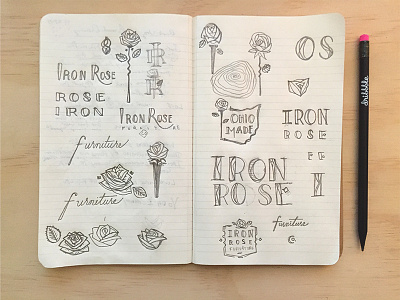 8
IR
IRON ROSE
R
ROSE
IRON
IRON ROSE
FURNITURE
furniture
furniture
OS
OHIO
MADE
IRON
ROSE
FF
IRON
ROSE
I
IRON
ROSE
FURNITURE
furniture
Co.
dribbble